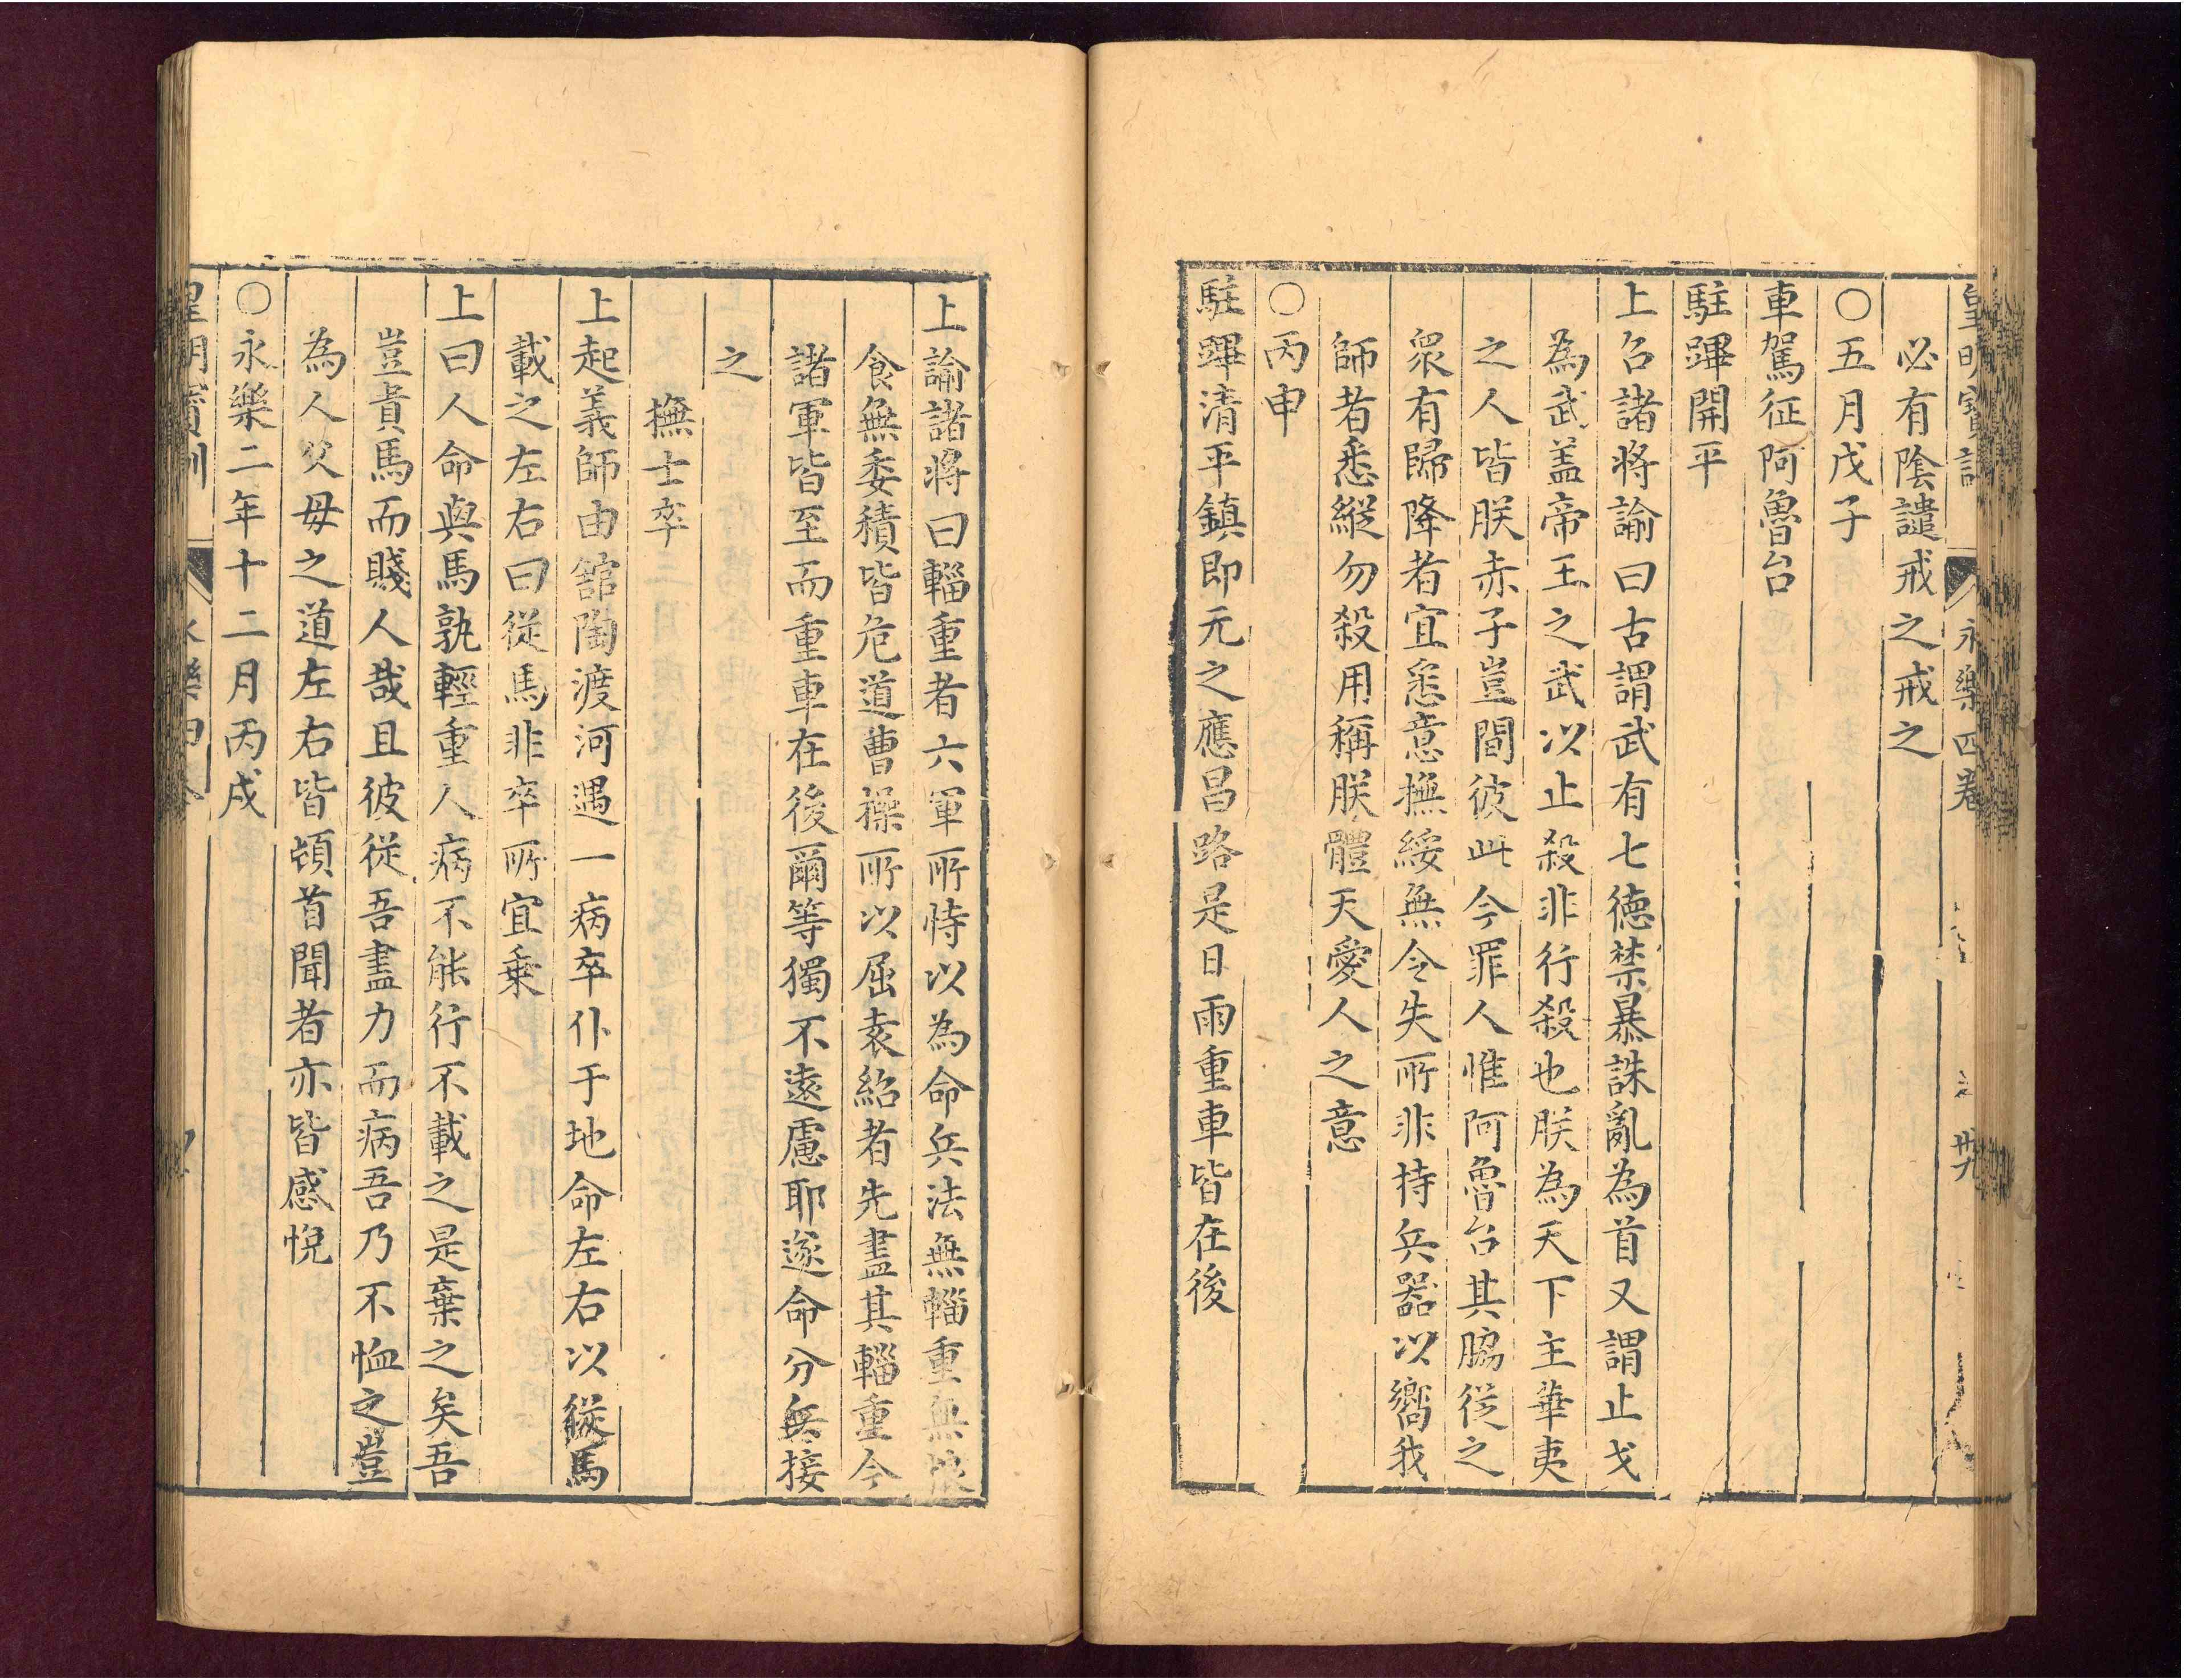 皇明寶訓 永樂四卷 卅九
必有陰譴戒之戒之
〇五月戊子
車駕征阿魯台
駐蹕開平
上召諸將諭曰古謂武有七德禁暴誅亂為首又謂止戈
為武蓋帝王之武以止殺非行殺也朕為天下主華夷
之人皆朕赤子豈間彼此今罪人惟阿魯台其脇從之
眾有歸降者宜悉意撫綏無令失所非持兵器以嚮我
師者悉縱勿殺用稱朕體天愛人之意
〇丙申
駐蹕清平鎮即元之應昌路是日雨重車皆在後
上諭諸將曰輜重者六軍所恃以為命兵法無輜重無糧
食無委積皆危道曹操所以屈袁紹者先盡其輜重今
諸軍皆至而重車在後爾等獨不遠慮耶遂命分兵接
之
撫士卒
上起義師由舘陶渡河遇一病卒仆于地命左右以從馬
載之左右曰從馬非卒所宜乗
上曰人命與馬孰輕重人病不能行不載之是棄之矣吾
豈貴馬而賤人哉且彼從吾盡力而病吾乃不恤之豈
為人父母之道左右皆頓首聞者亦皆感悅
〇永樂二年十二月丙戌
皇明寶訓 永樂四卷